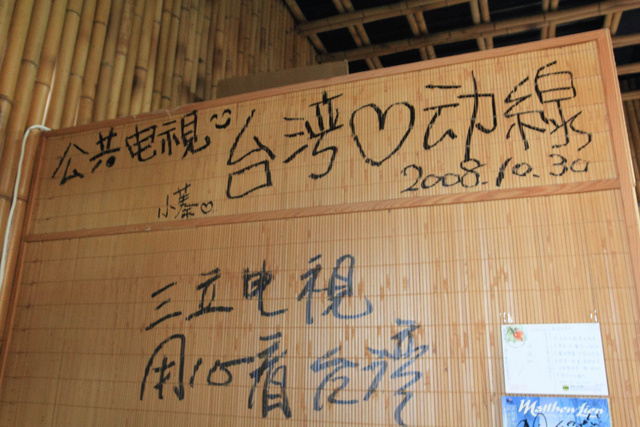 公共电視 台湾♡动線
2008.10.30
小蓁♡
三立电視
用心看台湾
Matthew Lien